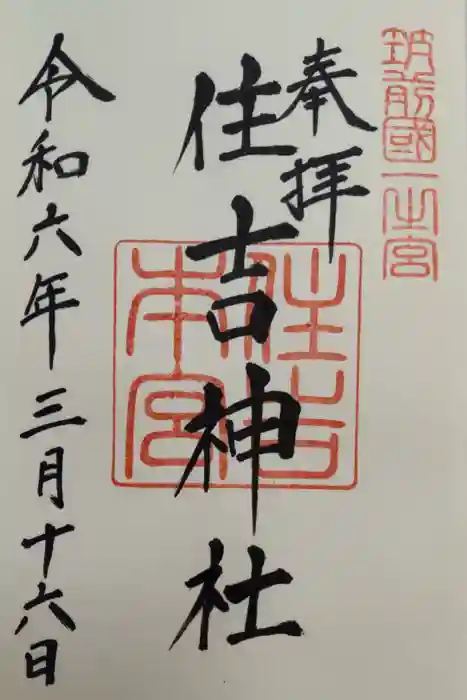 筑前國一之宮
奉拝
住吉神社
住吉本宮
令和六年三月十六日